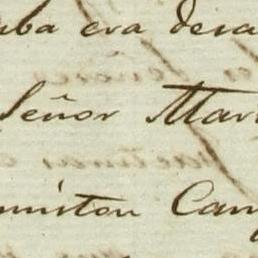 uba era desa
Señor Mar
miston Cam